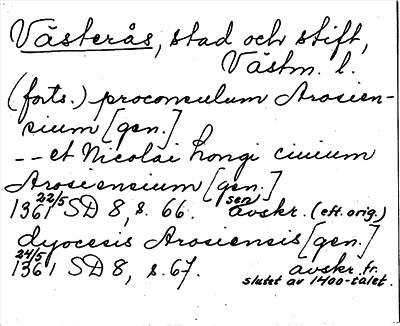 Västerås, stad och stift,
Västm. l.
(forts.) proconsulum Arosien-
sium [gen.]
-- et Nicolai Longi ciuium
Arosiensium [gen.]
1361 22/5 SD 8, s. 66. sen avskr. (eft. orig.)
dyocesis Arosiensis [gen.]
1361 24/5 SD 8, s. 67. avskr. fr.
slutet av 1400-talet.